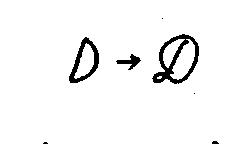 D → 𝒟